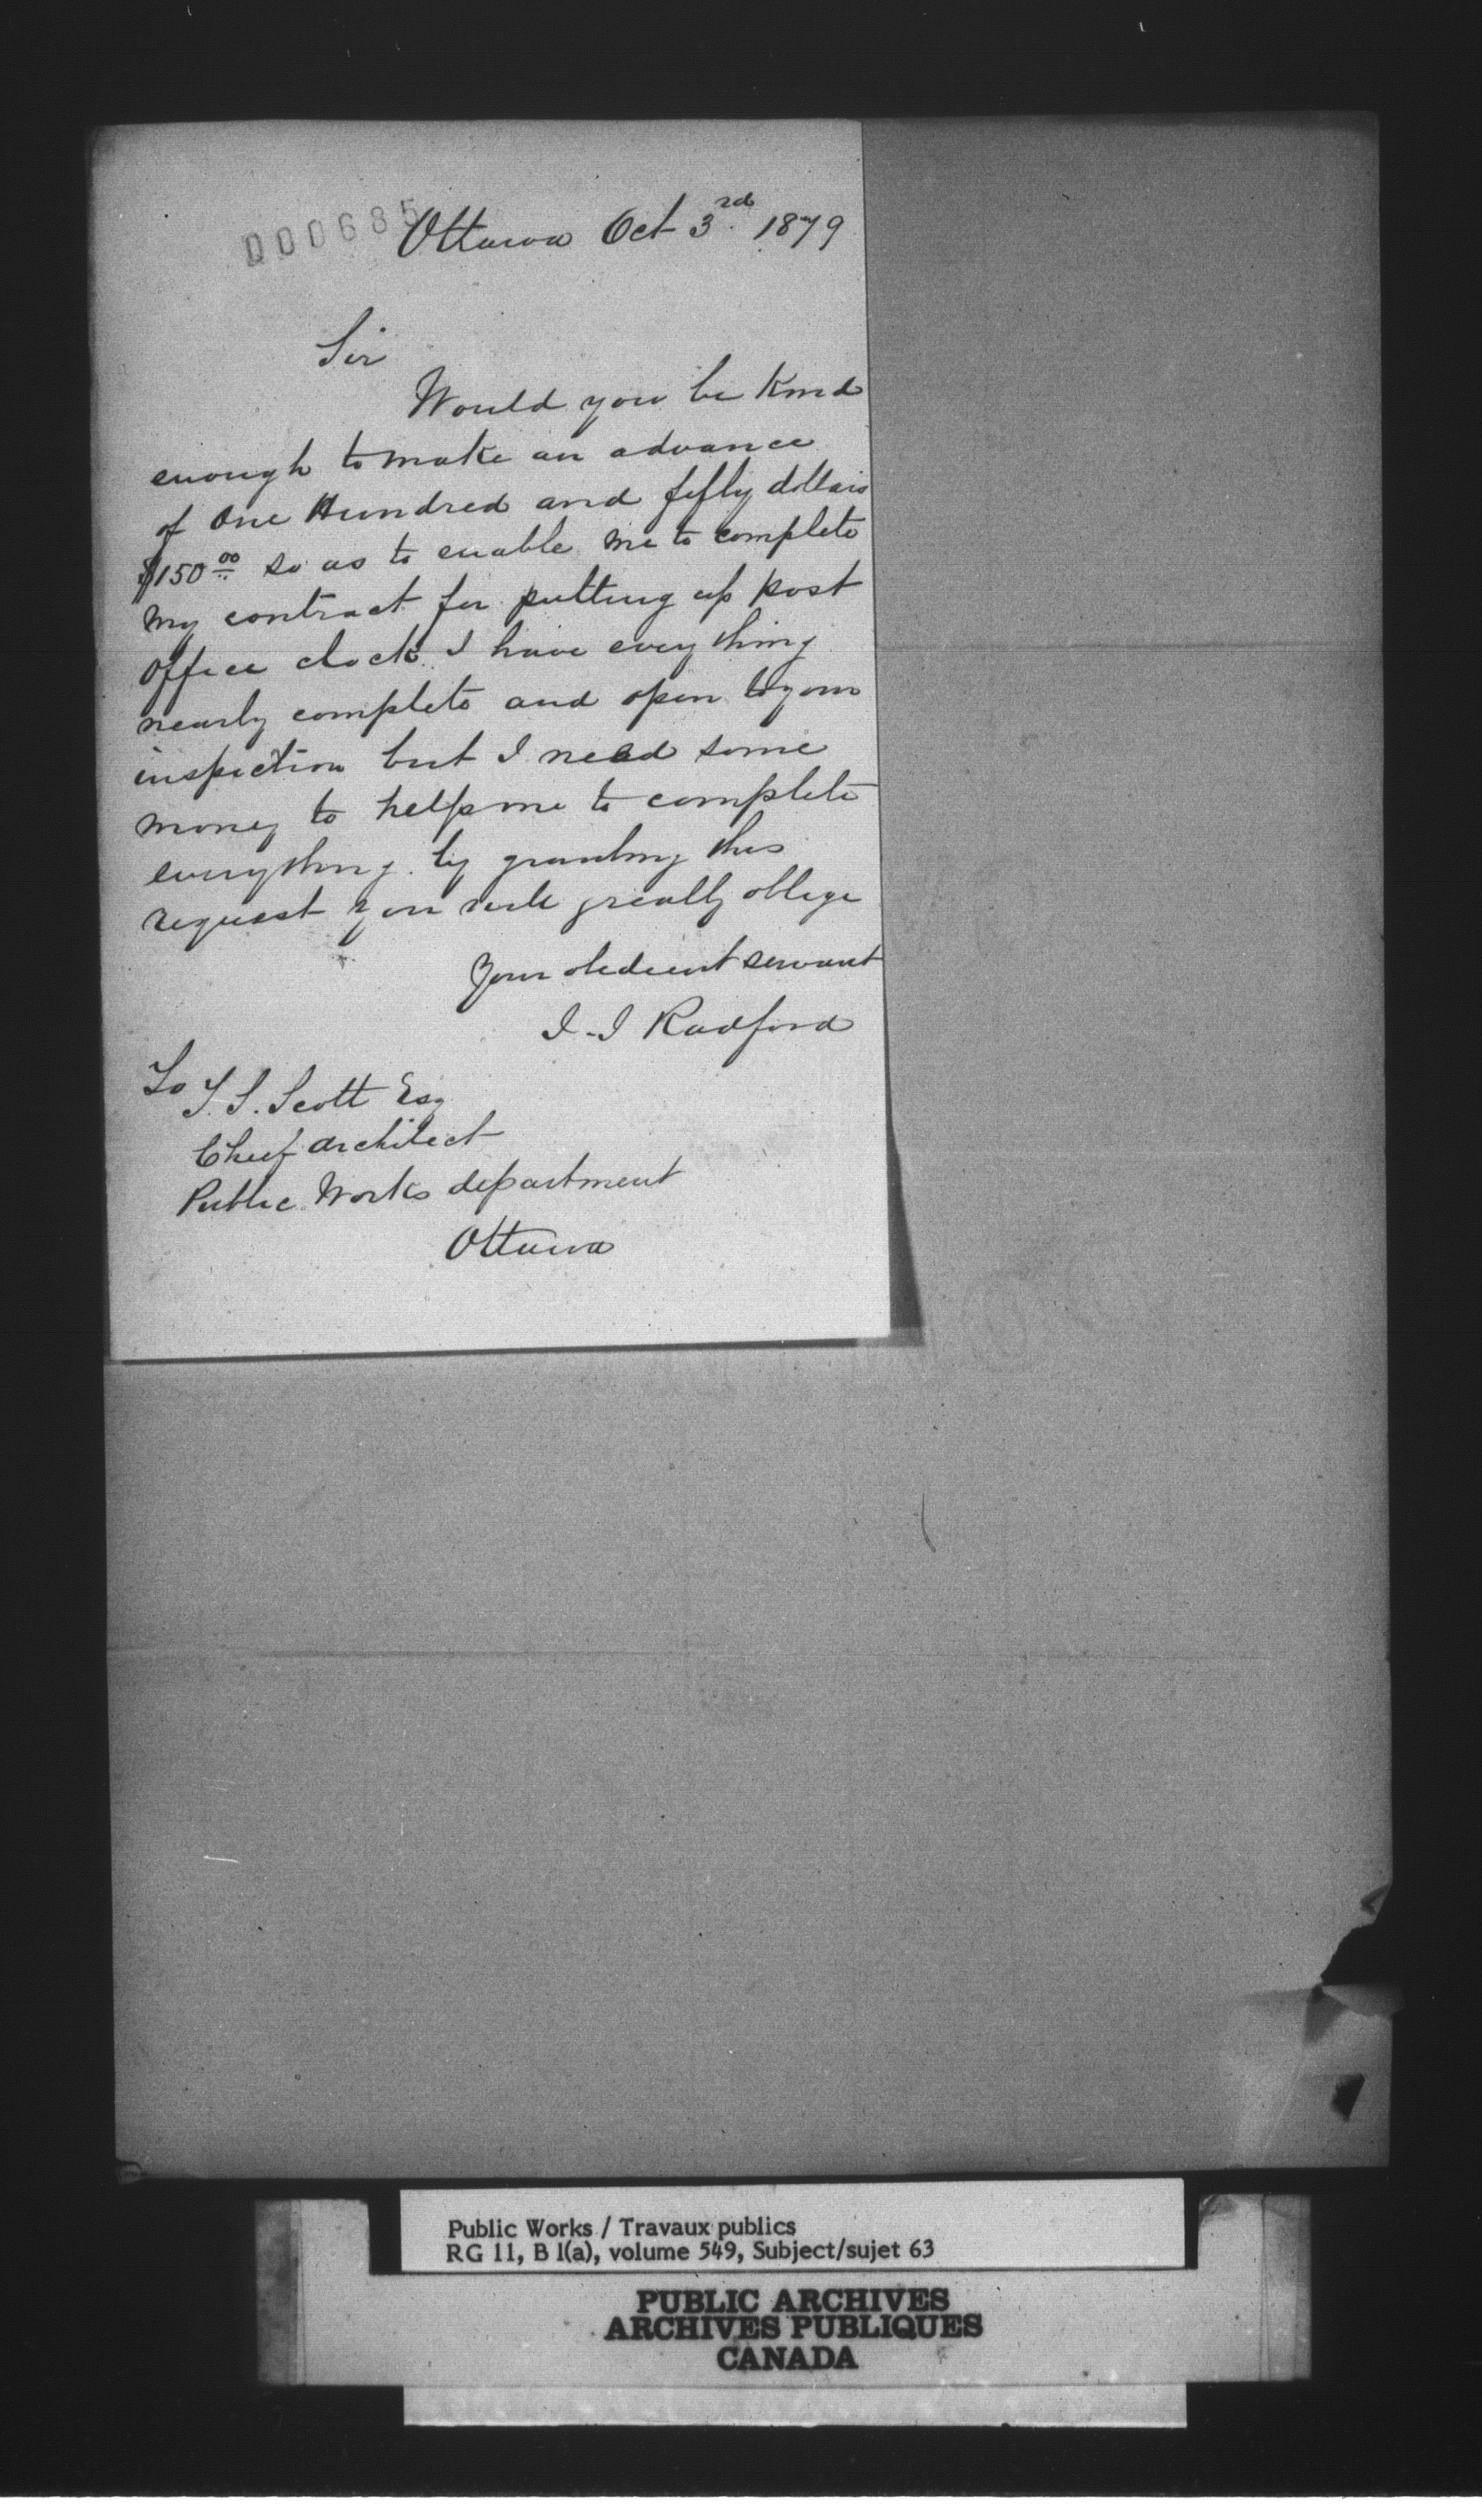 000685
Ottawa Oct 3rd. 1879
Sir
Would you be Kind
enough to make an advance
of One Hundred and fifty dollars
$150 00 so as to enable me to complete
my contract for putting up post
office clock I have everything
nearly complete and open to your
inspection but I need some
money to help me to complete
everything. by granting this
request you will greatly oblige
Your obedient servant
I-I Radford
To T. S. Scott Esq
Chief architect
Public Works department
Ottawa
Public Works / Travaux publics
RG 11, B 1(a), volume 549, Subject/sujet 63
PUBLIC ARCHIVES
ARCHIVES PUBLIQUES
CANADA